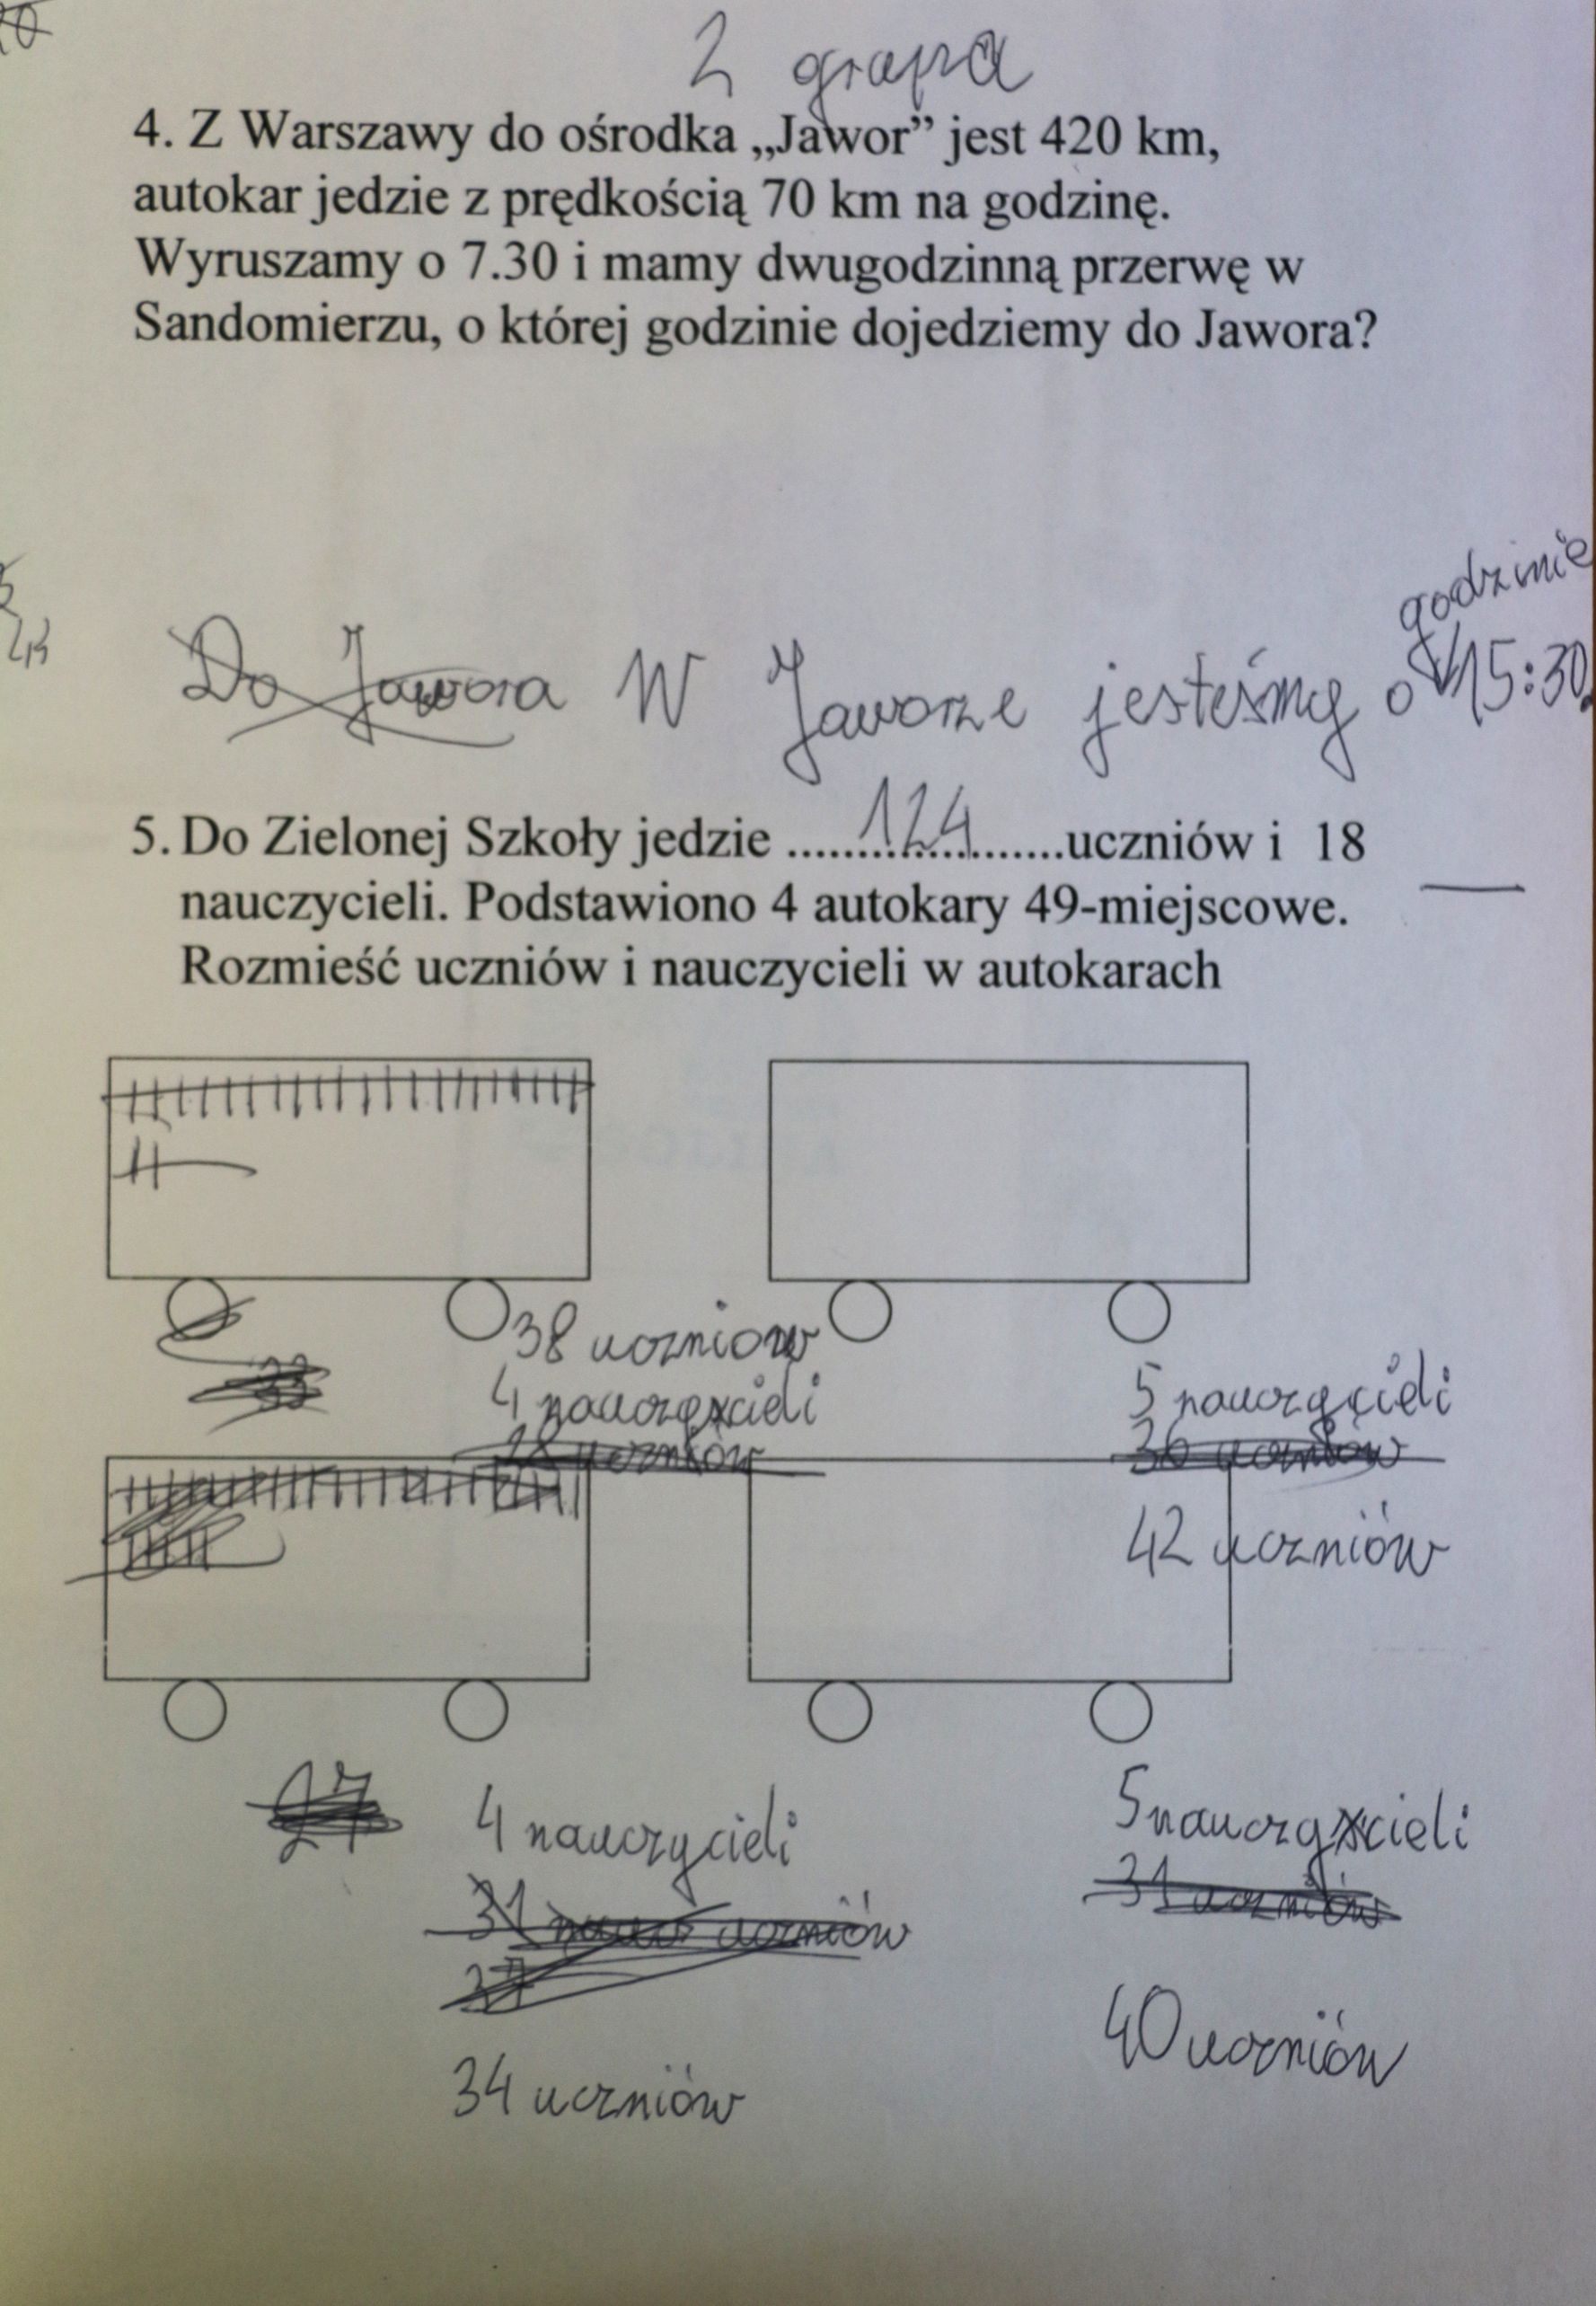 2 grupa
4. Z Warszawy do ośrodka „Jawor” jest 420 km,
autokar jedzie z prędkością 70 km na godzinę.
Wyruszamy o 7.30 i mamy dwugodzinną przerwę w
Sandomierzu, o której godzinie dojedziemy do Jawora?
godzinie
Do Jawora W Jaworze jesteśmy o 15:30.
5. Do Zielonej Szkoły jedzie ......124......uczniów i 18
nauczycieli. Podstawiono 4 autokary 49-miejscowe.
Rozmieść uczniów i nauczycieli w autokarach
33
38 uczniow
4 nauczycieli
28 uczniów
5 nauczycieli
30 uczniów
42 uczniów
27
4 nauczycieli
31 uczniów
37
34 uczniów
5 nauczycieli
31 uczniów
40 uczniów